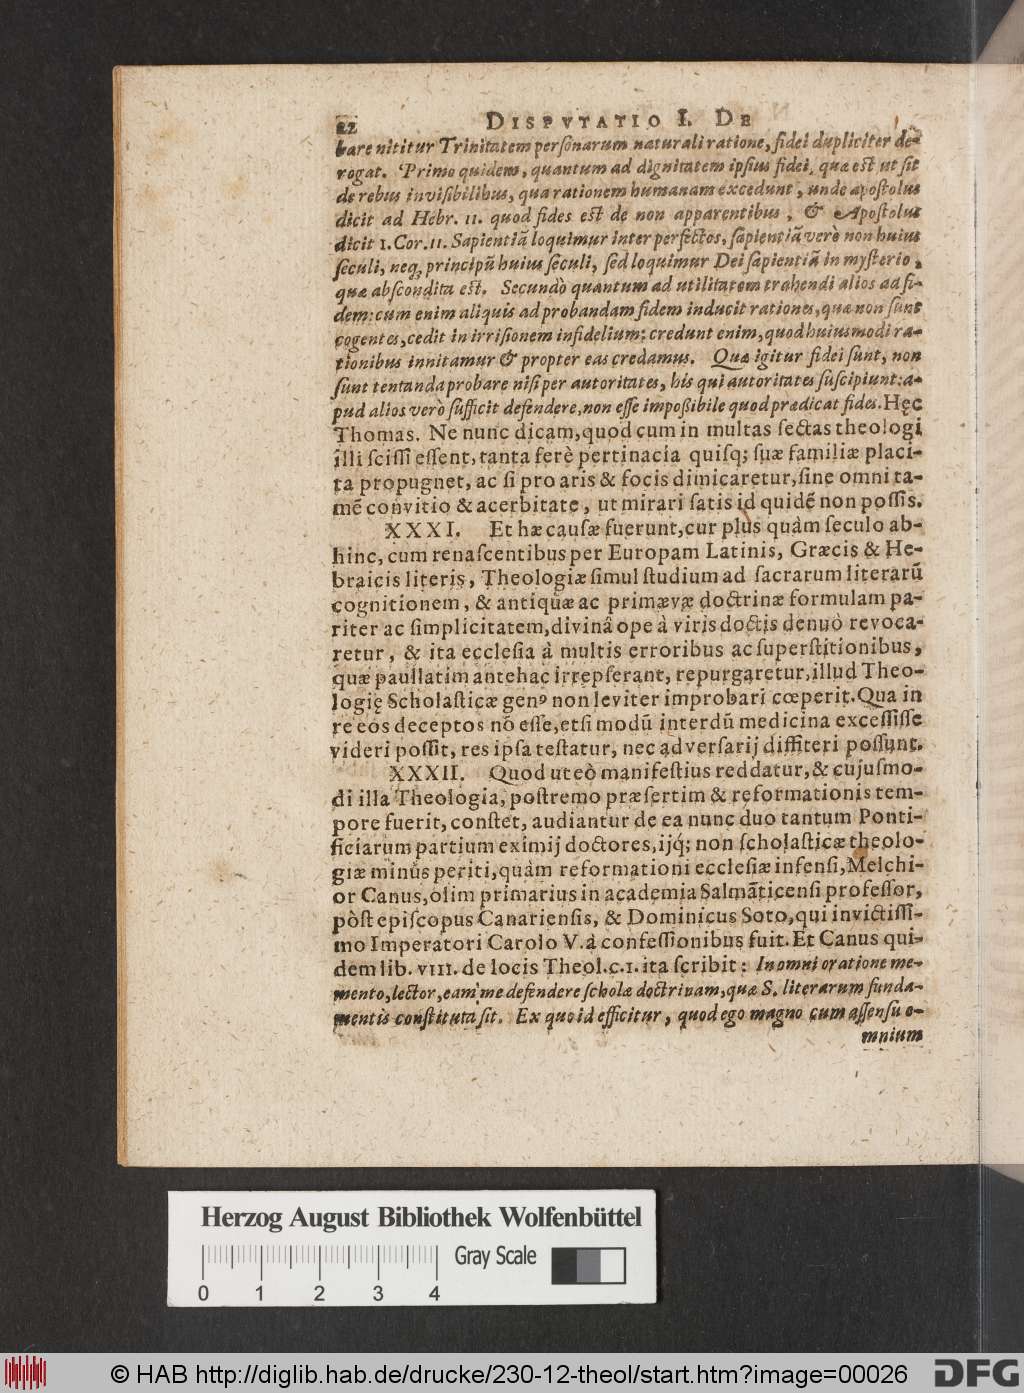 22 DISPVTATIO I. DE
bare nititur Trinitatem personarum naturali ratione, fidei dupliciter de-
rogat. Primo quidem, quantum ad dignitatem ipsius fidei, quæ est ut sit
de rebus invisibilibus, qua rationem humanam excedunt, unde apostolus
dicit ad Hebr. 11. quod fides est de non apparentibus, & Apostolus
dicit 1. Cor. 11. Sapientiã loquimur inter perfectos, sapientiã verò non huius
seculi, neq; principũ huius seculi, sed loquimur Dei sapientiã in mysterio,
quæ abscondita est. Secundò quantum ad utilitatem trahendi alios ad fi-
dem: cum enim aliquis ad probandam fidem inducit rationes, quæ non sunt
cogentes, cedit in irrisionem infidelium: credunt enim, quod huiusmodi ra-
tionibus innitamur & propter eas credamus. Quæ igitur fidei sunt, non
sunt tentanda probare nisi per autoritates, his qui autoritates suscipiunt: a-
pud alios verò sufficit defendere, non esse impoßibile quod prædicat fides. Hęc
Thomas. Ne nunc dicam, quod cum in multas sectas theologi
illi scissi essent, tanta ferè pertinacia quisq; suæ familiæ placi-
ta propugnet, ac si pro aris & focis dimicaretur, sine omni ta-
mẽ convitio & acerbitate, ut mirari satis id quidẽ non possis.
XXXI. Et hæ causæ fuerunt, cur plus quàm seculo ab-
hinc, cum renascentibus per Europam Latinis, Græcis & He-
braicis literis, Theologiæ simul studium ad sacrarum literarũ
cognitionem, & antiquæ ac primævæ doctrinæ formulam pa-
riter ac simplicitatem, divinâ ope à viris doctis denuò revoca-
retur, & ita ecclesia à multis erroribus ac superstitionibus,
quæ paullatim antehac irrepserant, repurgaretur, illud Theo-
logię Scholasticæ genꝰ non leviter improbari cœperit. Qua in
re eos deceptos nõ esse, etsi modũ interdũ medicina excessisse
videri possit, res ipsa testatur, nec adversarij diffiteri possunt.
XXXII. Quod ut eò manifestius reddatur, & cujusmo-
di illa Theologia, postremo præsertim & reformationis tem-
pore fuerit, constet, audiantur de ea nunc duo tantum Ponti-
ficiarum partium eximij doctores, ijq́; non scholasticæ theolo-
giæ minùs periti, quàm reformationi ecclesiæ infensi, Melchi-
or Canus, olim primarius in academia Salmãticensi professor,
pòst episcopus Canariensis, & Dominicus Soto, qui invictissi-
mo Imperatori Carolo V. à confessionibus fuit. Et Canus qui-
dem lib. VIII. de locis Theol. c. 1. ita scribit: In omni oratione me-
mento, lector, eam me defendere scholæ doctrinam, quæ S. literarum funda-
mentis constituta sit. Ex quo id efficitur, quod ego magno cum assensu o-
mnium
Herzog August Bibliothek Wolfenbüttel
Gray Scale
0 1 2 3 4
© HAB http://diglib.hab.de/drucke/230-12-theol/start.htm?image=00026
DFG